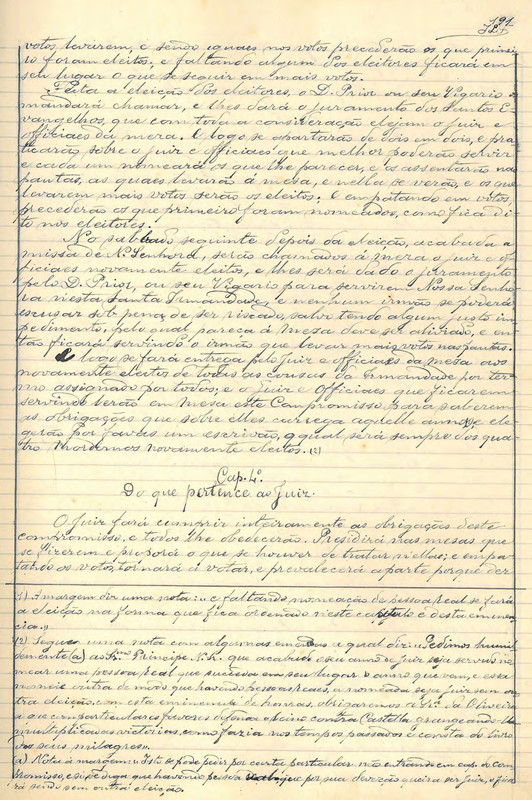 votos levarem, e sendo iguaes nos votos precederão os que primei-
ro foram eleitos, e faltando algum dos eleitores ficará em
seu lugar o que se seguir em mais votos.
Feita a eleição dos eleitores, o D. Prior ou seu Vigario os
mandará chamar, e lhes dará o juramento dos Santos E-
vangelhos, que com toda a consideração elejam o Juiz e
officiaes da mesa. E logo se apartarão de dois em dois, e pra-
ticarão sobre o Juiz e officiaes que melhor poderão servir
e cada um nomeará os que lhe parecer, e os assentarão nas
pautas, as quaes levarão á mesa, e nella se verão, e os que
levarem mais votos serão os eleitos. E empatando em votos,
precederão os que primeiro foram nomeados, como fica di-
to nos eleitores.
No sabbado seguinte depois da eleição, acabada a
missa de N. Senhora, serão chamados á mesa o Juiz e of-
ficiaes novamente eleitos, e lhes será dado o juramento
pelo D. Prior, ou seu Vigario para servirem Nossa Senho-
ra nesta Santa Irmandade, e nenhum irmão se poderá
escusar sob pena de ser riscado, salvo tendo algum justo im-
pedimento, pelo qual pareça á Mesa deve ser aliviado, e en-
tão ficará servindo o irmão que levar mais votos nas pautas.
E logo se fará entrega pelo Juiz e officiaes da mesa aos
novamente eleitos de todas as cousas da Irmandade por ter-
mo assignado por todos; e o Juiz e Officiaes que ficarem
servindo lerão em Mesa este Compromisso, para saberem
as obrigações que sobre elles carrega aquelle anno, e ele-
gerão por favas um escrivão, o qual será sempre dos qua-
tro mordomos novamente eleitos. (2)
Cap. 4º.
Do que pertence ao Juiz.
O Juiz fará cumprir inteiramente as obrigações deste
compromisso, e todos lhe obedecerão. Presidirá nas mesas que
se fizerem e proporá o que se houver de tratar nellas; e empa-
tando os votos, tornará a votar, e prevalecerá a parte porque der
(1) Á margem diz uma nota: e faltando nomeação de pessoa real se fará
a eleição na forma que fica ordenado neste capitulo e desta eminen-
cia.»
(2) Segue uma nota com algumas a qual diz: «Pedimos humil-
demente (a) ao Principe N. S. que acabado o seu anno de Juiz seja servido no-
mear uma pessoa real que succeda em seu lugar o anno que vem, e essa
nomeie outra de modo que havendo pessoas reaes, a nomeada seja Juiz sem ou-
tra eleição com esta eminencia de honras, obrigaremos a Vir. da Oliveira
a que com particulares favores defenda o reino contra Castella grangeando-lhe
multiplicadas victorias, como fazia nos tempos passados e consta do livro
dos seus milagres».
(a) Nota á margem: «Isto se póde pedir por carta particular não entrando em cap. do Com-
promisso, e só se diga que havendo pessoa real que por sua devoção queira ser Juiz, o fica-
rá sendo sem outra eleição.